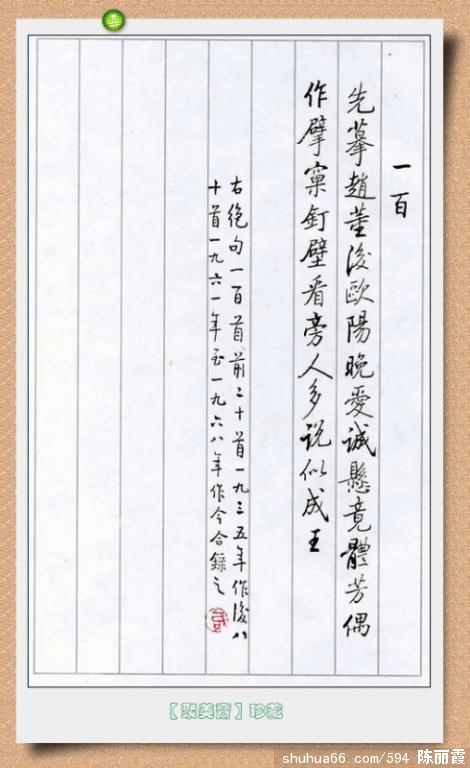 一百
先摹趙董後歐陽晚愛誠懸竟體芳偶
作擘窠釘壁看旁人多说似成王
右絕句一百首前二十首一九三五年作後八
十首一九六一年至一九六八年作今合錄之
【聚美斋】珍藏
shuhua66.com/594 陈丽霞